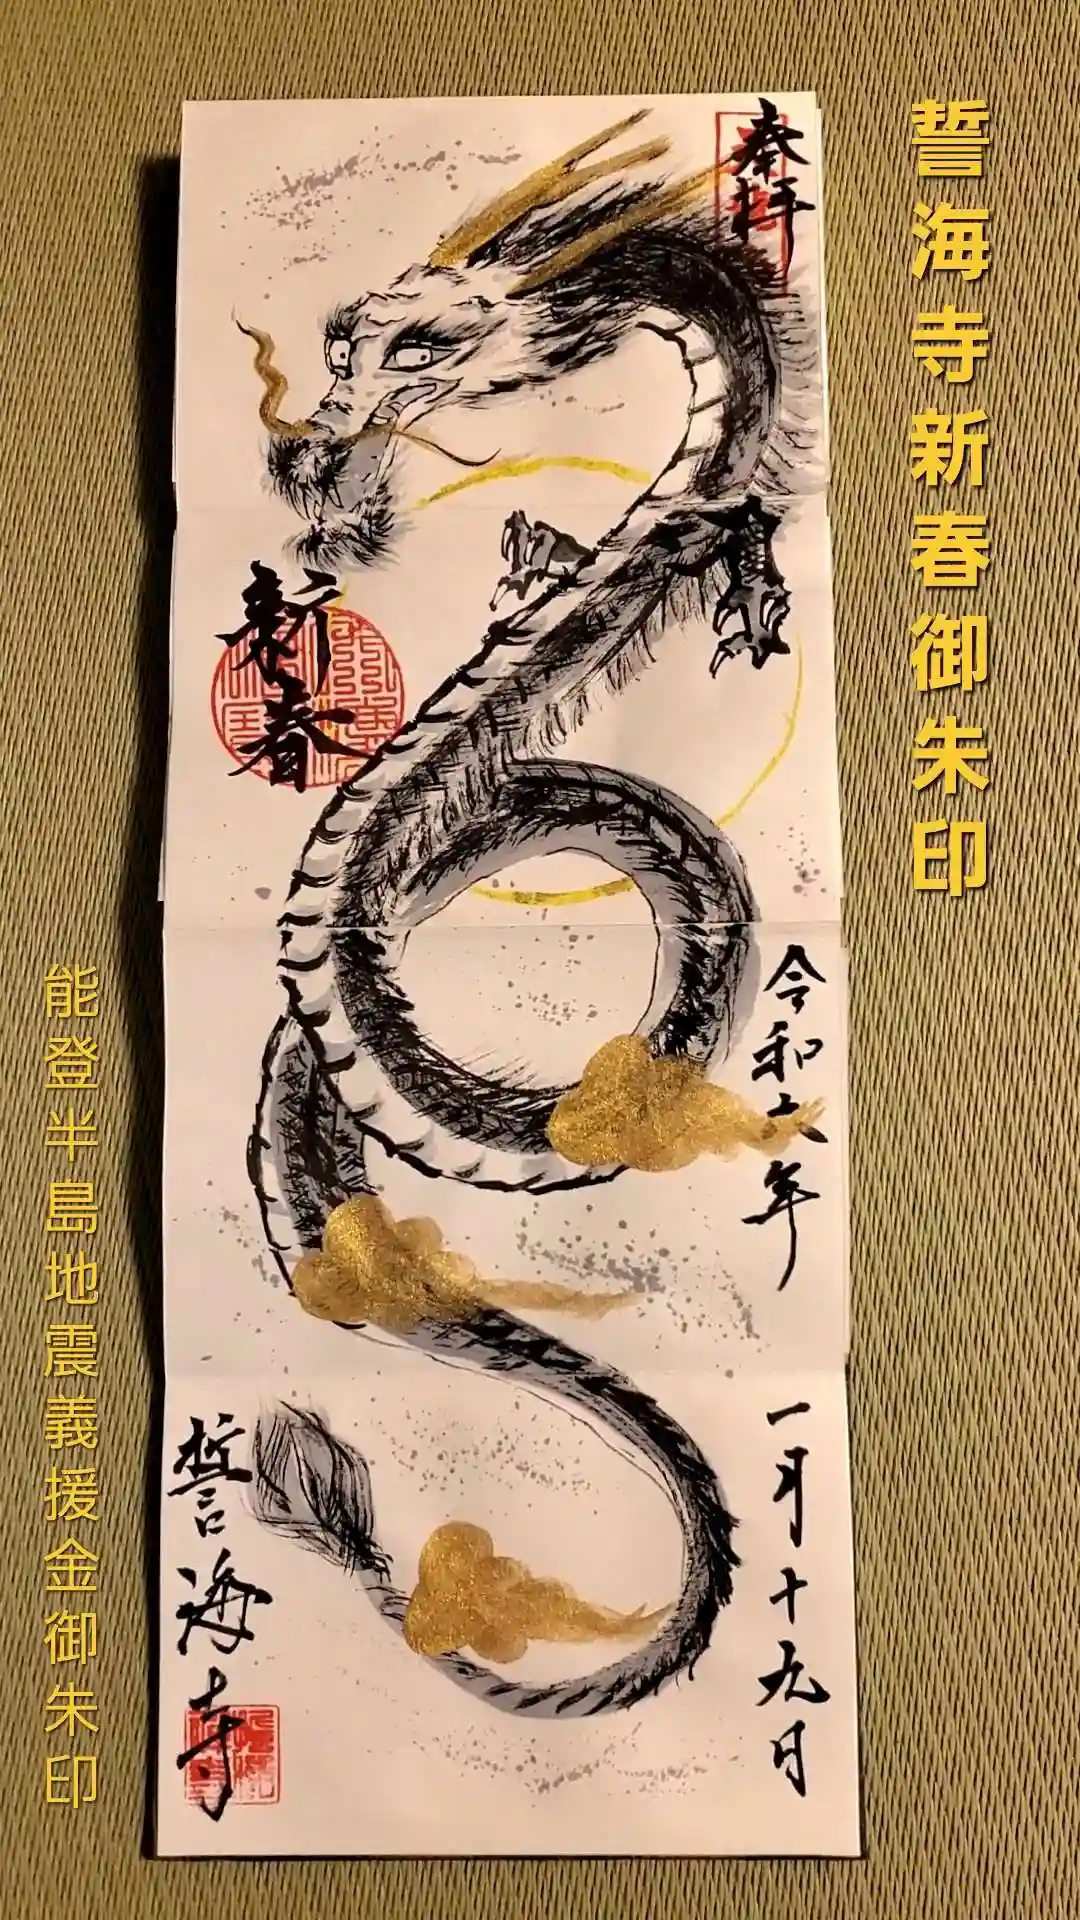 誓海寺新春御朱印
奉拝
新春
令和六年
一月十九日
誓海寺
能登半島地震義援金御朱印